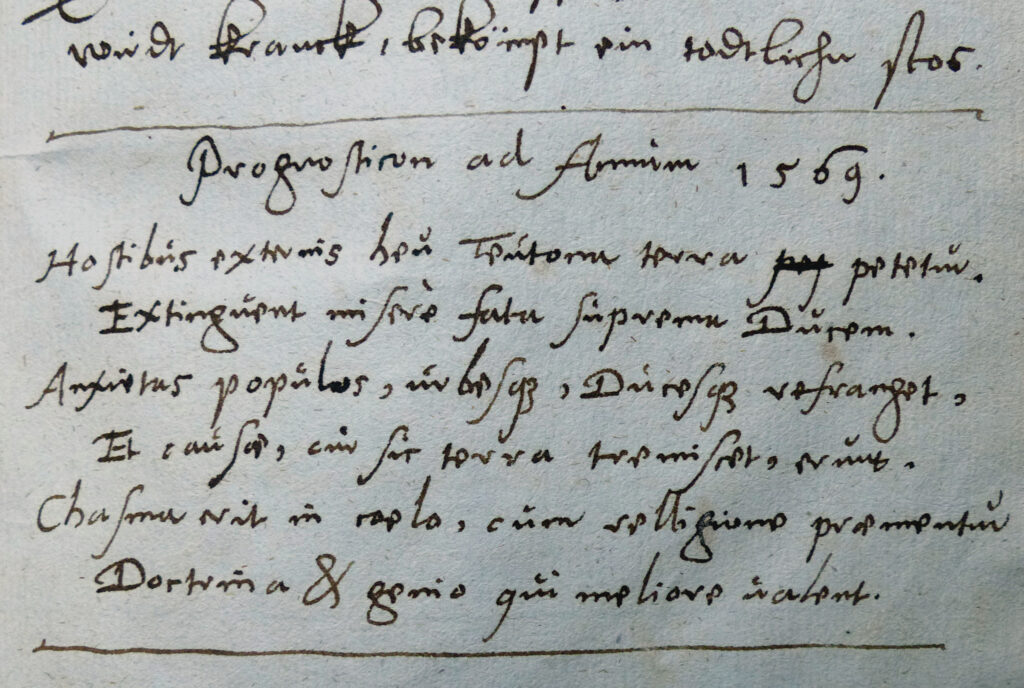 wirdt kranck, beköᷠpt ein todtlichen stos.
Prognosticon ad Annum 1569.
Hostibus externis heu Teutona terra petetur.
Extinguent miserè fata suprema Ducem.
Anxietas populos, urbesqꝫ, Ducesqꝫ refranget,
Et causæ, cur sic terra tremiscet, erunt.
Chasma erit in coelo, cum relligione præmentur
Doctrina & genio qui meliore valent.